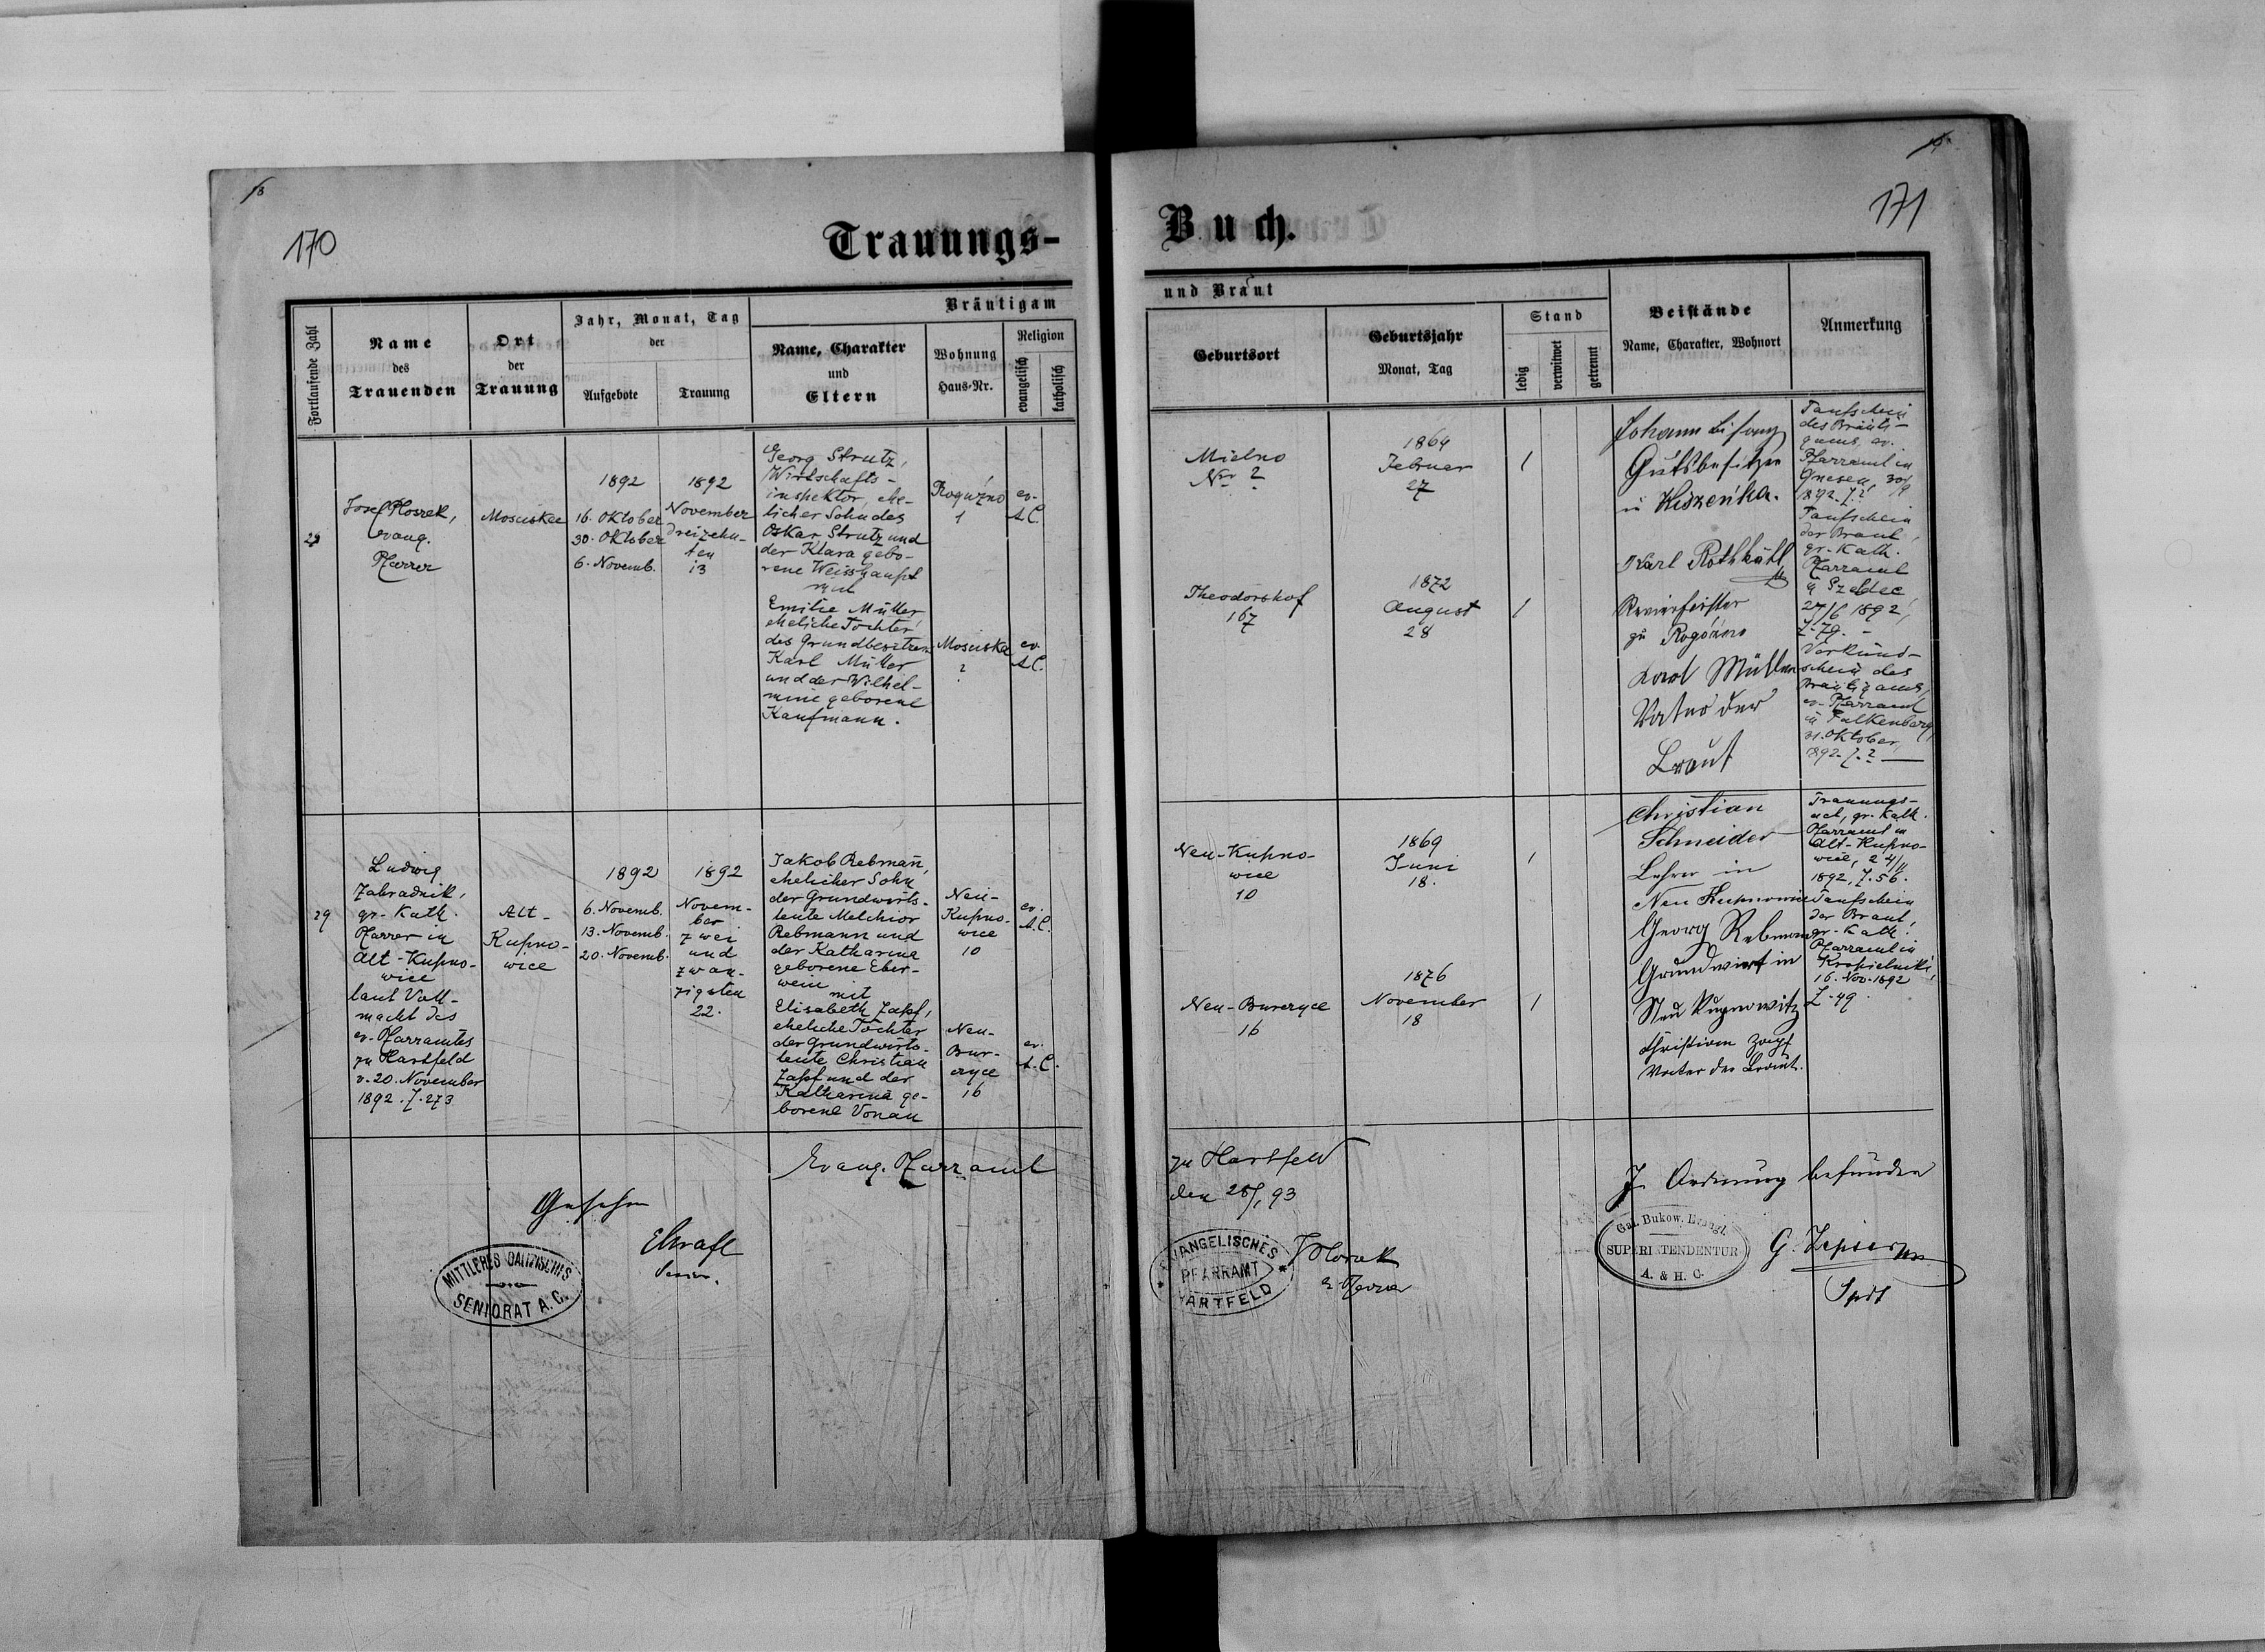 18
170
Trauungs-
Fortlaufende Zahl
Name
des
Trauenden
Ort
der
Trauung
Jahr, Monat, Tag
der
Aufgebote
Trauung
Bräutigam
Name, Charakter
und
Eltern
Wohnung
Haus-Nr.
Religion
evangelisch
katholisch
28
Josef Ploszek,
evang.
Pfarrer
Mosciska
1892
16. Oktober
30. Oktober
6. Novemb.
1892
November
dreizehn-
ten
13
Georg Strutz,
Wirtschafts-
inspektor, ehe-
licher Sohn des
Oskar Strutz und
der Klara gebo-
rene Weisshaupt
mit
Emilie Müller
eheliche Tochter
des Grundbesitzers
Karl Müller
und der Wilhel-
mine geborene
Kaufmann.
Roguźno
1
ev.
A.C.
Mosciska
?
ev.
A.C.
29
Ludwig
Zahradnik,
gr.-Kath.
Pfarrer in
Alt-Kupno-
wice
laut Voll-
macht des
ev. Pfarramtes
zu Hartfeld
v. 20. November
1892. Z. 273
Alt-
Kupno-
wice
1892
6. Novemb.
13. Novemb.
20. Novemb.
1892
Novem-
ber
zwei
und
zwan-
zigsten
22.
Jakob Rebmann,
ehelicher Sohn
der Grundwirts-
leute Melchior
Rebmann und
der Katharina
geborene Eber-
wein
mit
Elisabeth Zapf,
eheliche Tochter
der Grundwirts-
leute Christian
Zapf und der
Katharina ge-
borene Vonau
Neu-
Kupno-
wice
10
ev.
A.C.
Neu-
Bur-
czyce
16
ev.
A.C.
Evang. Pfarramt
Gesehen
MITTLERES GALIZISCHES
SENIORAT A.C.
Senior.
171
Buch.
und Braut
Geburtsort
Geburtsjahr
Monat, Tag
Stand
ledig
verwitwet
getrennt
Beistände
Name, Charakter, Wohnort
Anmerkung
Mielno
Nr 2
1864
Februar
27
1
Theodorshof
167
1872
August
28
1
Johann
Gutsbesitzer
in
Karl
Revierförster
zu Rogóźno
Karl Müller
Vater der
Braut
Taufschein
des Bräuti-
gams, ev.
Pfarramt in
Gnesen, 30/9
1892. Z. ?
Taufschein
der Braut,
gr.-Kath.
Pfarramt
in
27/6 1892,
Z. 79. -
Verkünd-
schein des
Bräutigams,
ev. Pfarramt
in Falkenberg,
31. Oktober
1892. Z. ?
Neu-Kupno-
wice
10
1869
Juni
18.
1
Neu-Burczyce
16
1876
November
18
1
Christian
Schneider
Lehrer in
Neu Kupnowice
Georg Rebmann
Grundwirt in
Neu Kupnowitz
Christian Zapf
Vater der Braut.
Trauungs-
act, gr. Kath.
Pfarramt in
Alt-Kupno-
wice, 24/11
1892, Z. 56.
Taufschein
der Braut,
gr.-Kath.
Pfarramt in
Kropielniki,
16. Nov. 1892
Z. 49.
zu Hartfeld
den
EVANGELISCHES
PFARRAMT
HARTFELD
ev. Pfarrer
In Ordnung befunden
Gal. Bukow. Evangl.
SUPERINTENDENTUR
A. & H. C.
G. Zipser
Spdt